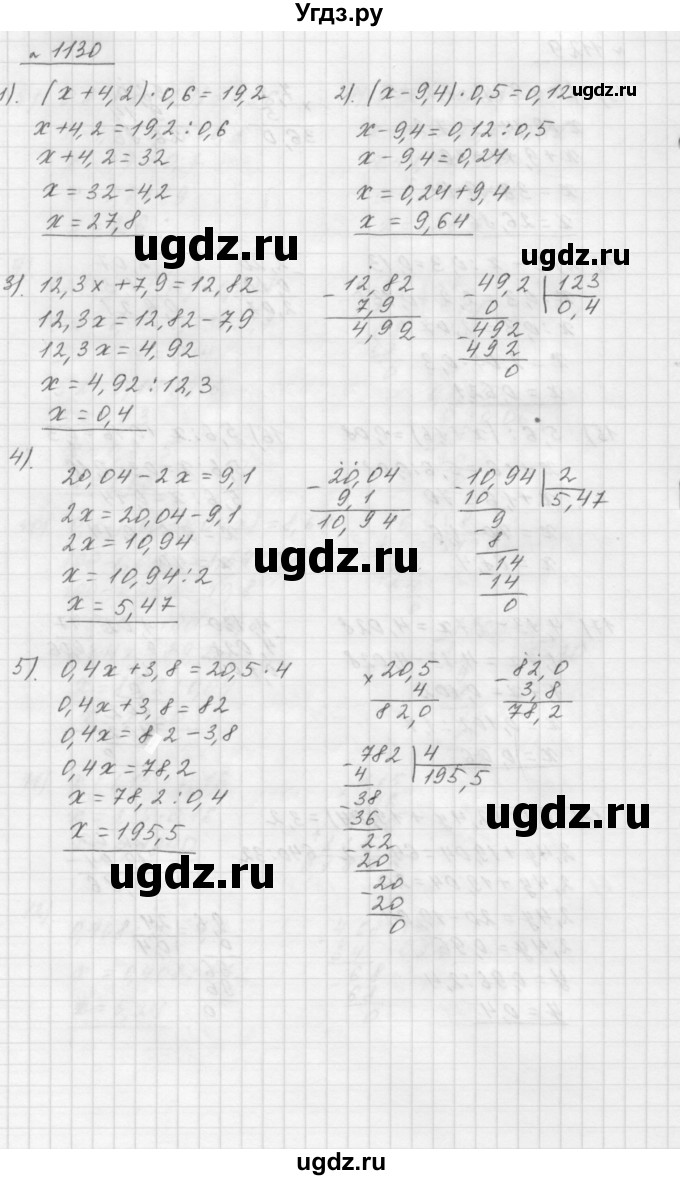 Угдз.ру
№ 1130
1). (x+4,2)·0,6=19,2
x+4,2=19,2:0,6
x+4,2=32
x=32-4,2
x=27,8
2). (x-9,4)·0,5=0,12
x-9,4=0,12:0,5
x-9,4=0,24
x=0,24+9,4
x = 9,64
ugdz.ru
ugdz.ru
ugdz.ru
3). 12,3x+7,9=12,82
12,3x=12,82-7,9
12,3x=4,92
x=4,92:12,3
x=0,4
-12,82
7,9
4,92
-49,2 | 123
0 | 0,4
-492
492
0
4).
20,04-2x=9,1
2x=20,04-9,1
2x=10,94
x=10,94:2
x=5,47
-20,04
9,1
10,94
-10,94 | 2
10 | 5,47
-9
8
-14
14
0
ugdz.ru
ugdz.ru
5). 0,4x+3,8=20,5·4
0,4x+3,8=82
0,4x=82-3,8
0,4x=78,2
x=78,2:0,4
x=195,5
×20,5
4
82,0
-82,0
3,8
78,2
-782 | 4
4 | 195,5
-38
36
-22
20
-20
20
0
ugdz.ru
ugdz.ru
ugdz.ru